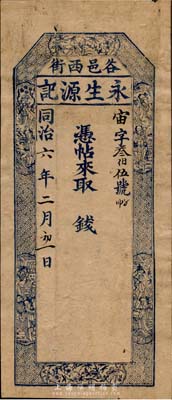 谷邑西街
永生源記
宙字叁伯伍號帖
憑帖來取 錢
同治六年二月初一日